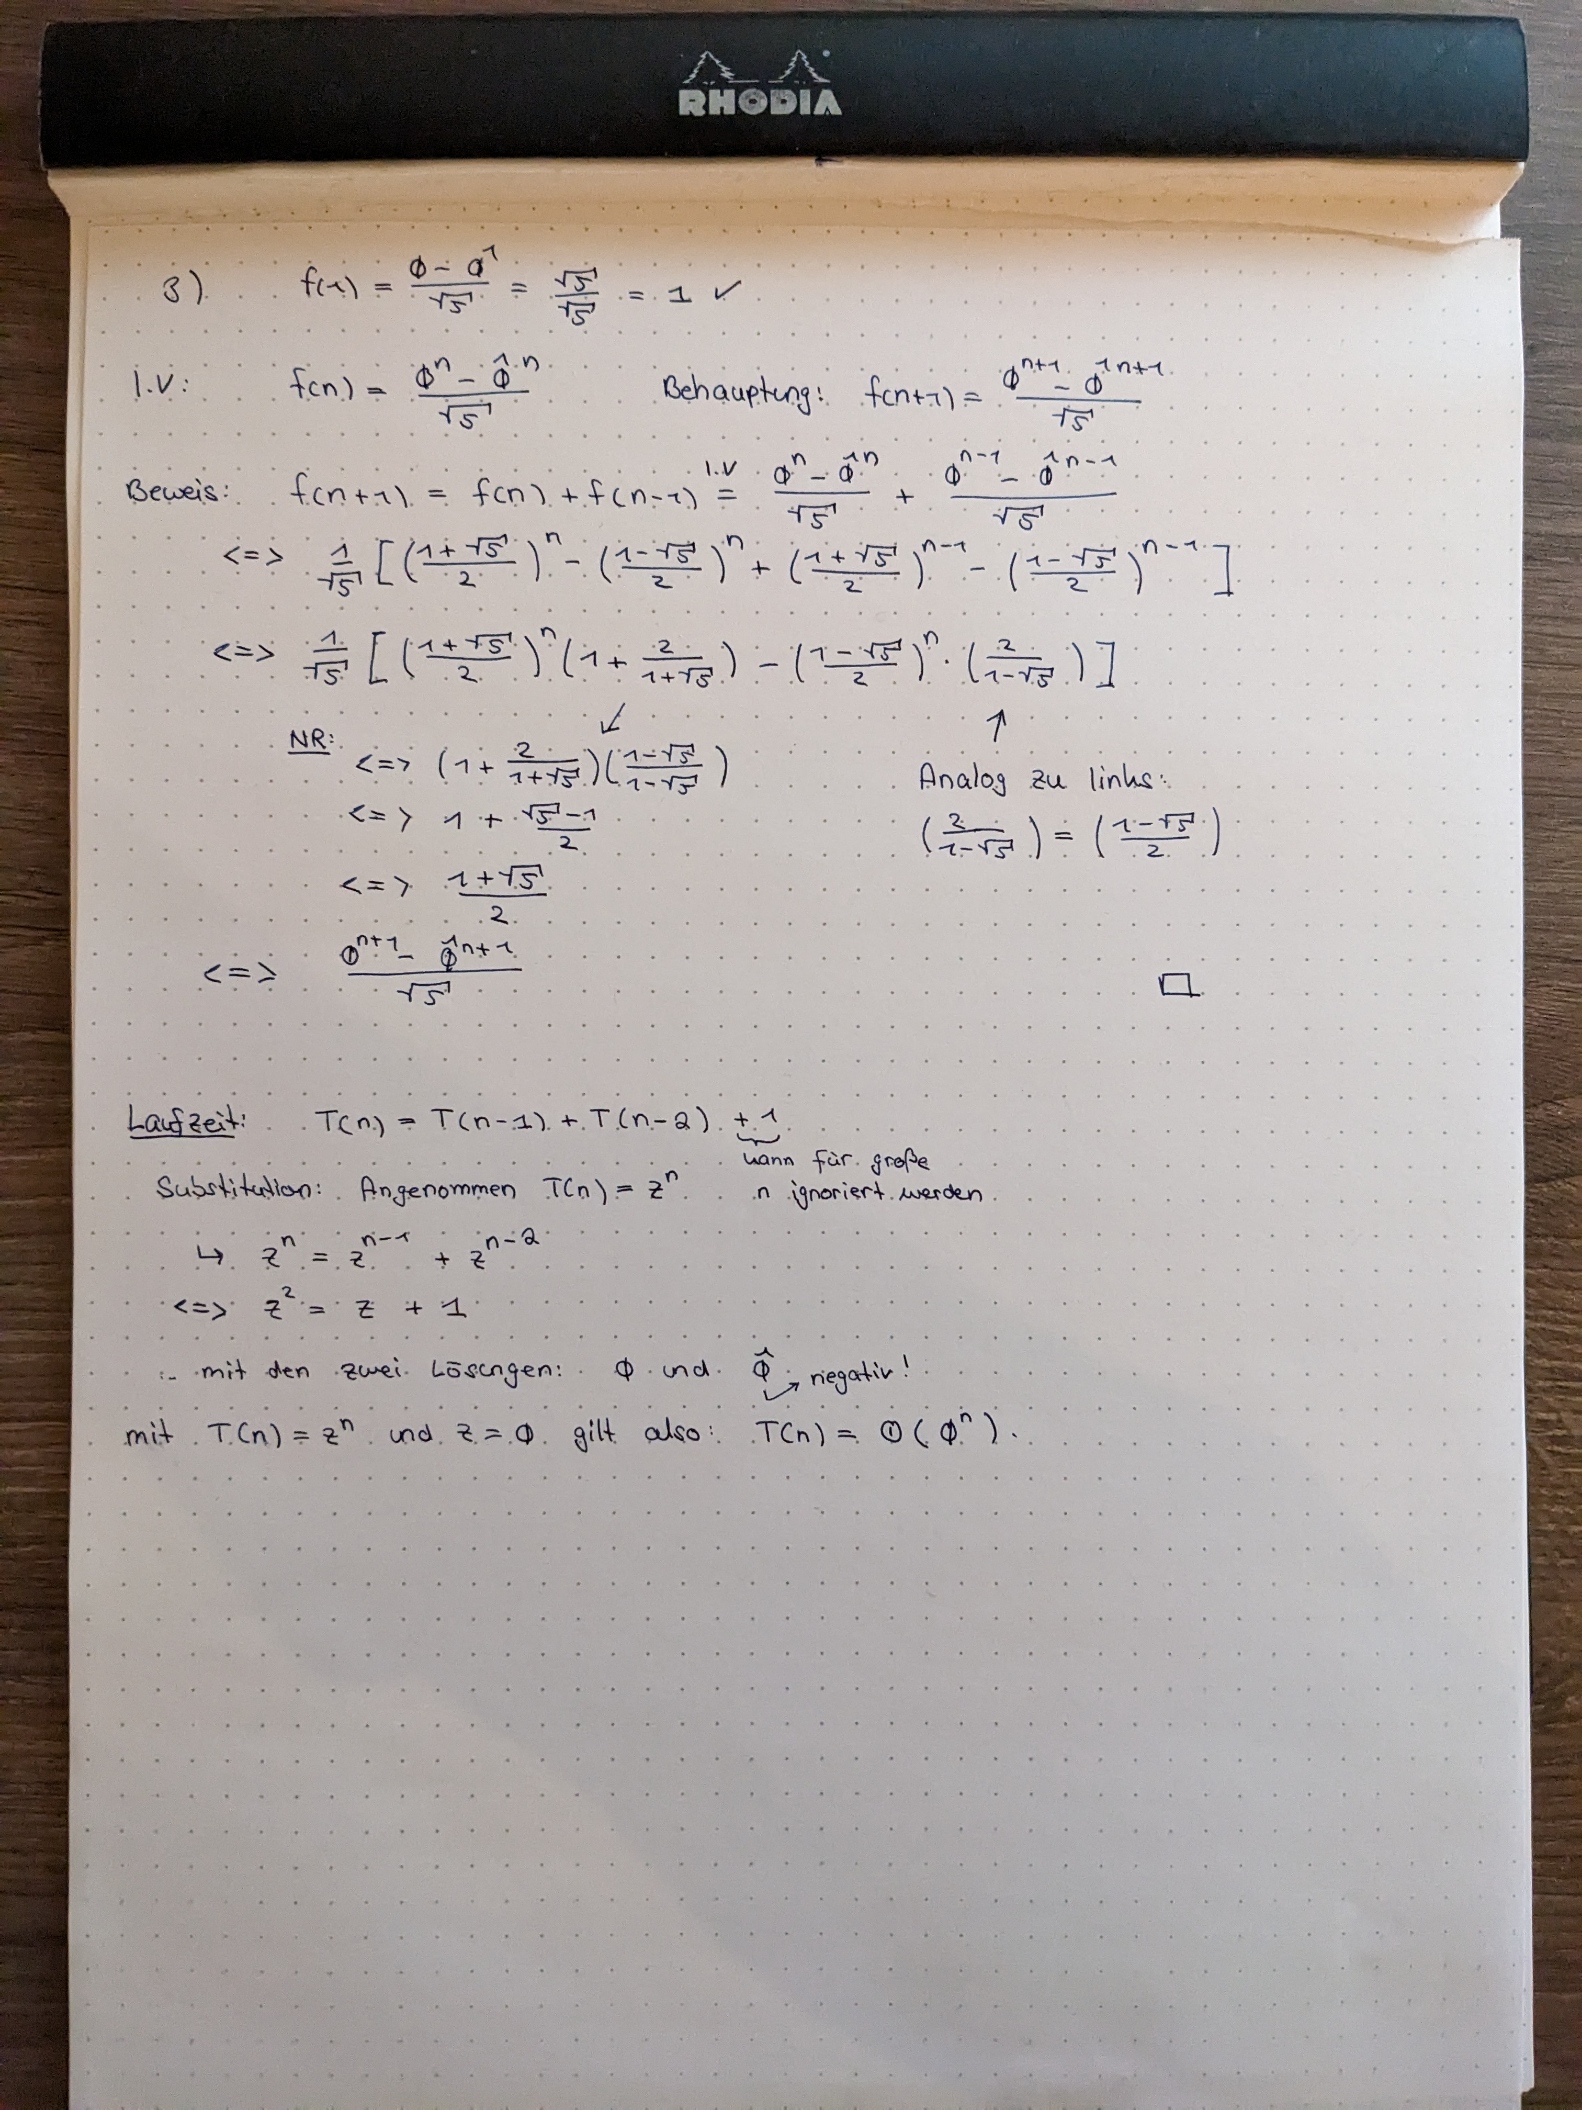 RHODIA
3) f(1) = (ϕ - ϕ̂)/√5 = √5/√5 = 1 ✓
I.V: f(n) = (ϕ^n - ϕ̂^n)/√5 Behauptung: f(n+1) = (ϕ^(n+1) - ϕ̂^(n+1))/√5
Beweis: f(n+1) = f(n) + f(n-1) =^(I.V) (ϕ^n - ϕ̂^n)/√5 + (ϕ^(n-1) - ϕ̂^(n-1))/√5
<=> 1/√5 [((1+√5)/2)^n - ((1-√5)/2)^n + ((1+√5)/2)^(n-1) - ((1-√5)/2)^(n-1)]
<=> 1/√5 [((1+√5)/2)^n (1 + 2/(1+√5)) - ((1-√5)/2)^n · (2/(1-√5))]
↙ ↑
NR: <=> (1 + 2/(1+√5)) ((1-√5)/(1-√5)) Analog zu links:
<=> 1 + (√5-1)/2 (2/(1-√5)) = ((1-√5)/2)
<=> (1+√5)/2
<=> (ϕ^(n+1) - ϕ̂^(n+1))/√5 □
Laufzeit: T(n) = T(n-1) + T(n-2) + 1
kann für große
Substitution: Angenommen T(n) = z^n n ignoriert werden
↳ z^n = z^(n-1) + z^(n-2)
<=> z^2 = z + 1
:- mit den zwei Lösungen: ϕ und ϕ̂ → negativ!
mit T(n) = z^n und z = ϕ gilt also: T(n) = O(ϕ^n).